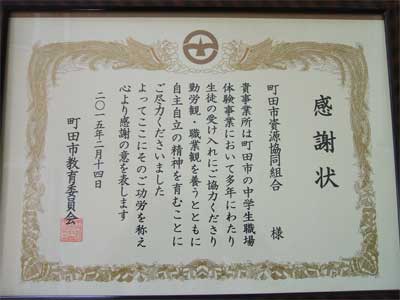 感謝状
町田市資源協同組合 様
貴事業所は町田市の中学生職場
体験事業において多年にわたり
生徒の受け入れにご協力くださり
勤労観・職業観を養うとともに
自主自立の精神を育むことに
ご尽力くださいました
よってここにそのご功労を称え
心より感謝の意を表します
二〇一五年二月十四日
町田市教育委員会